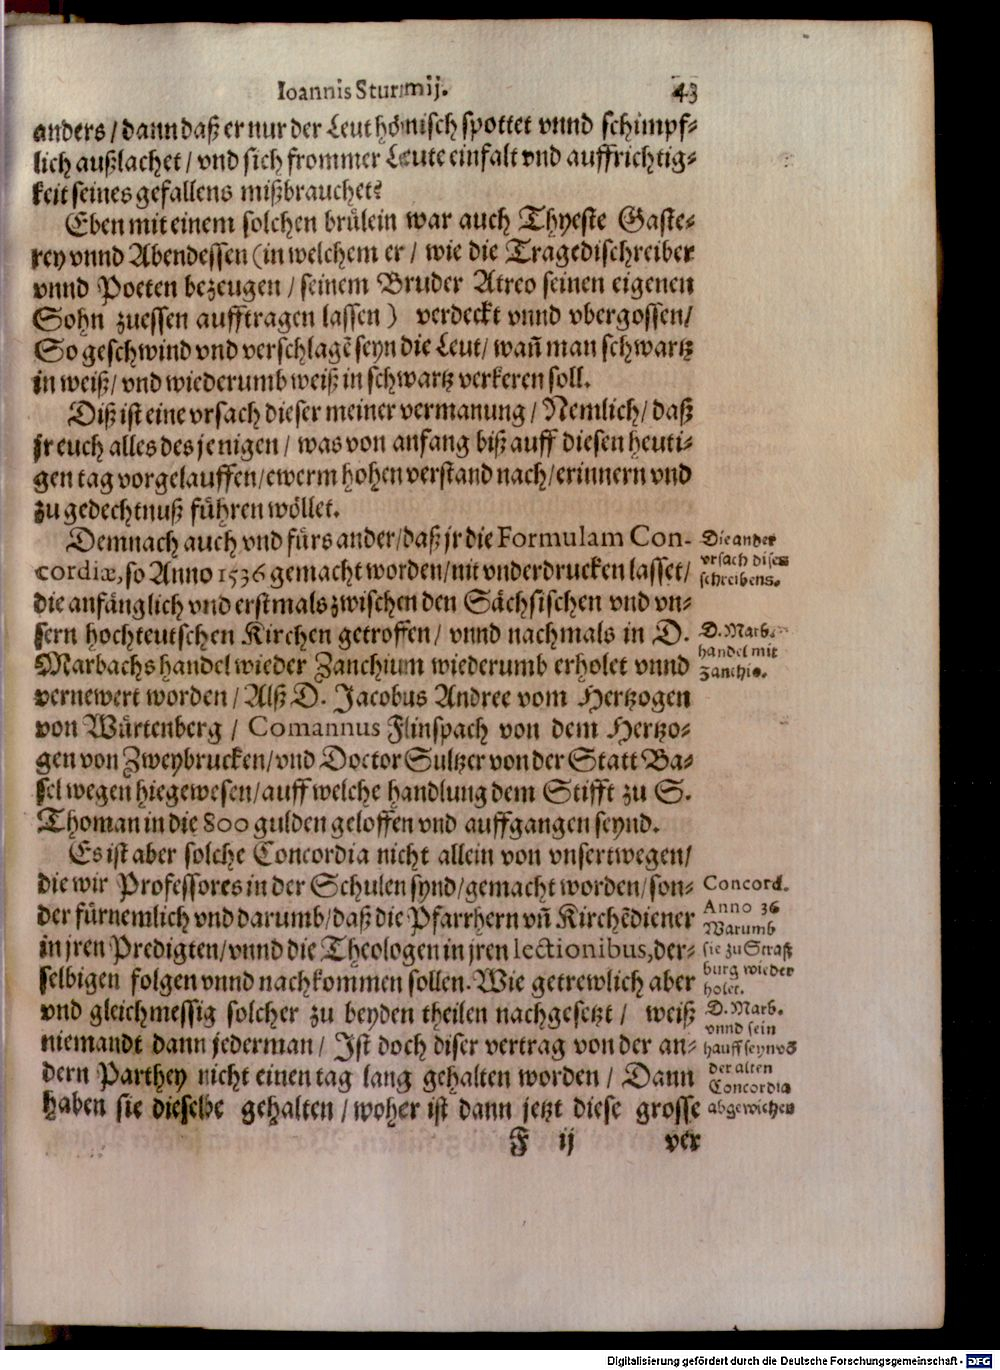 Ioannis Sturmij. 43
anders / dann daß er nur der Leut hönisch spottet vnnd schimpf-
lich außlachet / vnd sich frommer Leute einfalt vnd auffrichtig-
keit seines gefallens mißbrauchet?
Eben mit einem solchen brülein war auch Thyeste Gaste-
rey vnnd Abendessen (in welchem er / wie die Tragedischreiber
vnnd Poeten bezeugen / seinem Bruder Atreo seinen eigenen
Sohn zuessen aufftragen lassen) verdeckt vnnd vbergossen /
So geschwind vnd verschlagẽ seyn die Leut / wañ man schwartz
in weiß / vnd wiederumb weiß in schwartz verkeren soll.
Diß ist eine vrsach dieser meiner vermanung / Nemlich / daß
jr euch alles desjenigen / was von anfang biß auff diesen heuti-
gen tag vorgelauffen / ewerm hohen verstand nach / erinnern vnd
zu gedechtnuß führen wöllet.
Demnach auch vnd fürs ander / daß jr die Formulam Con-
cordiæ, so Anno 1536 gemacht worden / nit vnderdrucken lasset /
die anfänglich vnd erstmals zwischen den Sächsischen vnd vn-
sern hochteutschen Kirchen getroffen / vnnd nachmals in D.
Marbachs handel wieder Zanchium wiederumb erholet vnnd
vernewert worden / Alß D. Jacobus Andree vom Hertzogen
von Würtenberg / Comannus Flinspach von dem Hertzo-
gen von Zweybrucken / vnd Doctor Sultzer von der Statt Ba-
sel wegen hiegewesen / auff welche handlung dem Stifft zu S.
Thoman in die 800 gulden geloffen vnd auffgangen seynd.
Es ist aber solche Concordia nicht allein von vnsertwegen /
die wir Professores in der Schulen synd / gemacht worden / son-
der fürnemlich vnd darumb / daß die Pfarrhern vñ Kirchẽdiener
in jren Predigten / vnnd die Theologen in jren lectionibus, der-
selbigen folgen vnnd nachkommen sollen. Wie getrewlich aber
vnd gleichmessig solcher zu beyden theilen nachgesetzt / weiß
niemandt dann jederman / Ist doch diser vertrag von der an-
dern Parthey nicht einen tag lang gehalten worden / Dann
haben sie dieselbe gehalten / woher ist dann jetzt diese grosse
F ij ver
Die ander
vrsach dises
schreibens.
D. Marb.
handel mit
Zanchio.
Concord.
Anno 36
Warumb
sie zu Straß
burg wieder
holet.
D. Marb.
vnnd sein
hauff seyn võ
der alten
Concordia
abgewichen
Digitalisierung gefördert durch die Deutsche Forschungsgemeinschaft - DFG